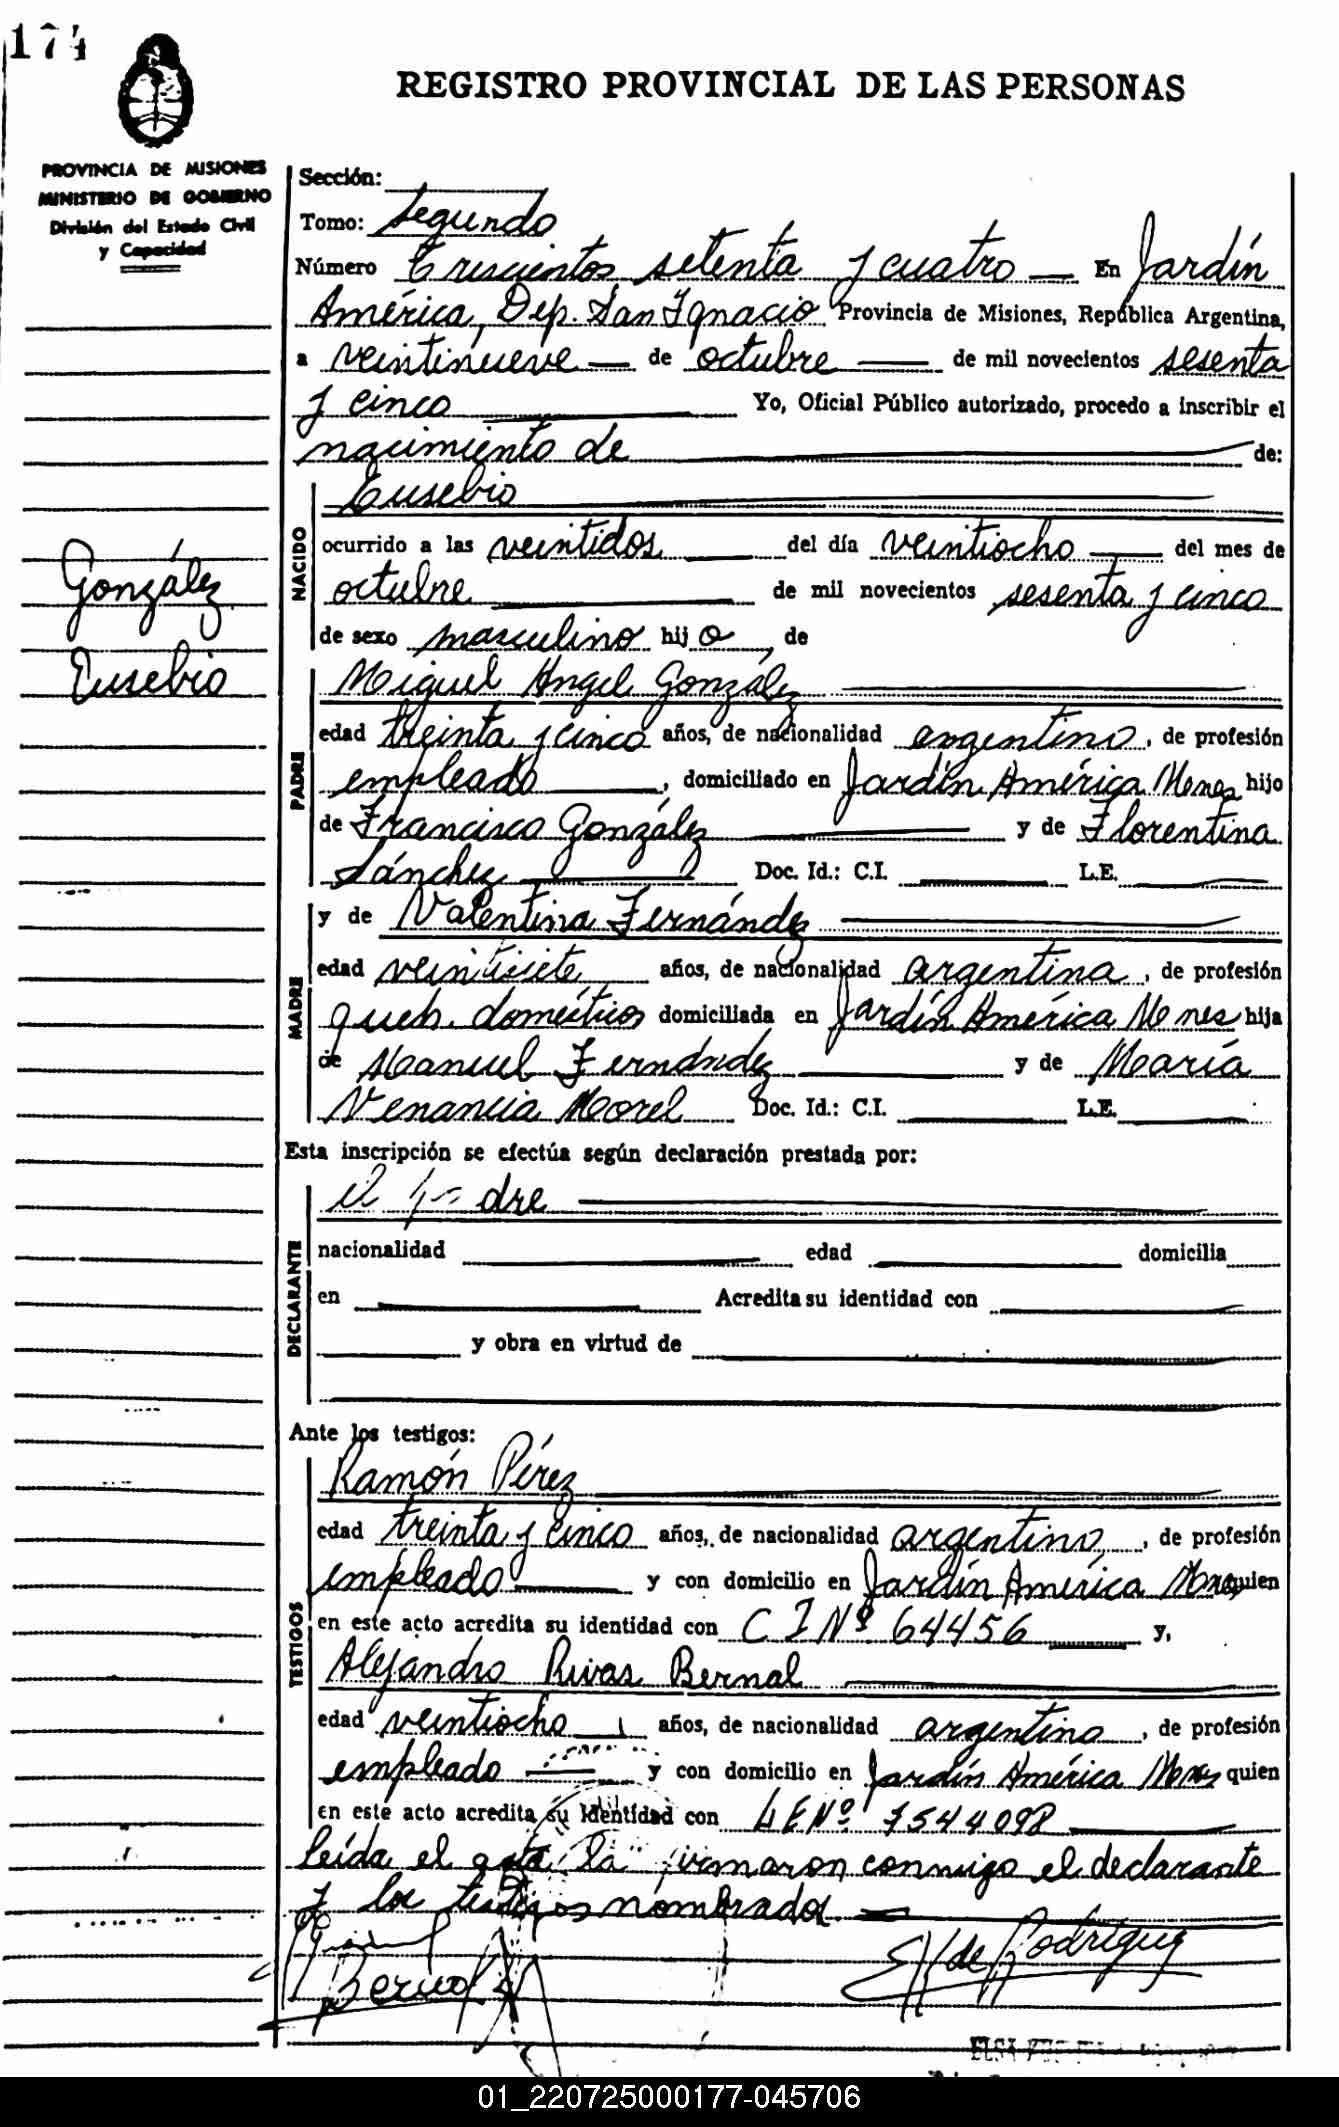 174
REGISTRO PROVINCIAL DE LAS PERSONAS
PROVINCIA DE MISIONES
MINISTERIO DE GOBIERNO
División del Estado Civil
y Capacidad
González
Eusebio
Sección:
Tomo: Segundo
Número Trescientos setenta y cuatro — En Jardín
América, Dep. San Ignacio Provincia de Misiones, República Argentina,
a veintinueve — de octubre — de mil novecientos sesenta
y cinco Yo, Oficial Público autorizado, procedo a inscribir el
nacimiento de de:
NACIDO
Eusebio
ocurrido a las veintidos del día veintiocho del mes de
octubre de mil novecientos sesenta y cinco
de sexo masculino hijo, de
PADRE
Miguel Angel González
edad treinta y cinco años, de nacionalidad argentino, de profesión
empleado, domiciliado en Jardín América Mones hijo
de Francisco González y de Florentina
Sánchez Doc. Id.: C.I. L.E.
MADRE
y de Valentina Fernández
edad veintisiete años, de nacionalidad argentina, de profesión
queh. domésticos domiciliada en Jardín América Mones hija
de Manuel Fernández y de María
Venancia Morel Doc. Id.: C.I. L.E.
Esta inscripción se efectúa según declaración prestada por:
DECLARANTE
el padre
nacionalidad edad domicilia
en Acredita su identidad con
y obra en virtud de
Ante los testigos:
TESTIGOS
Ramón Pérez
edad treinta y cinco años, de nacionalidad argentino, de profesión
empleado y con domicilio en Jardín América Mones quien
en este acto acredita su identidad con C I Nº 64456 y,
Alejandro Rivas Bernal
edad veintiocho años, de nacionalidad argentino, de profesión
empleado y con domicilio en Jardín América Mones quien
en este acto acredita su identidad con L E Nº 7544098
leída el acta la firmaron conmigo el declarante
y los testigos nombrados.
Bernal
de Rodriguez
ELSA
01_220725000177-045706